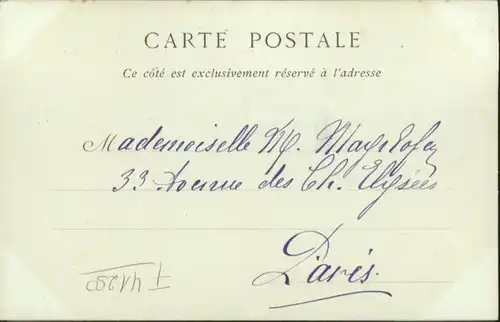 CARTE POSTALE
Ce côté est exclusivement réservé à l'adresse
Mademoiselle M.
33 Avenue des Ch. Elysées
Paris.